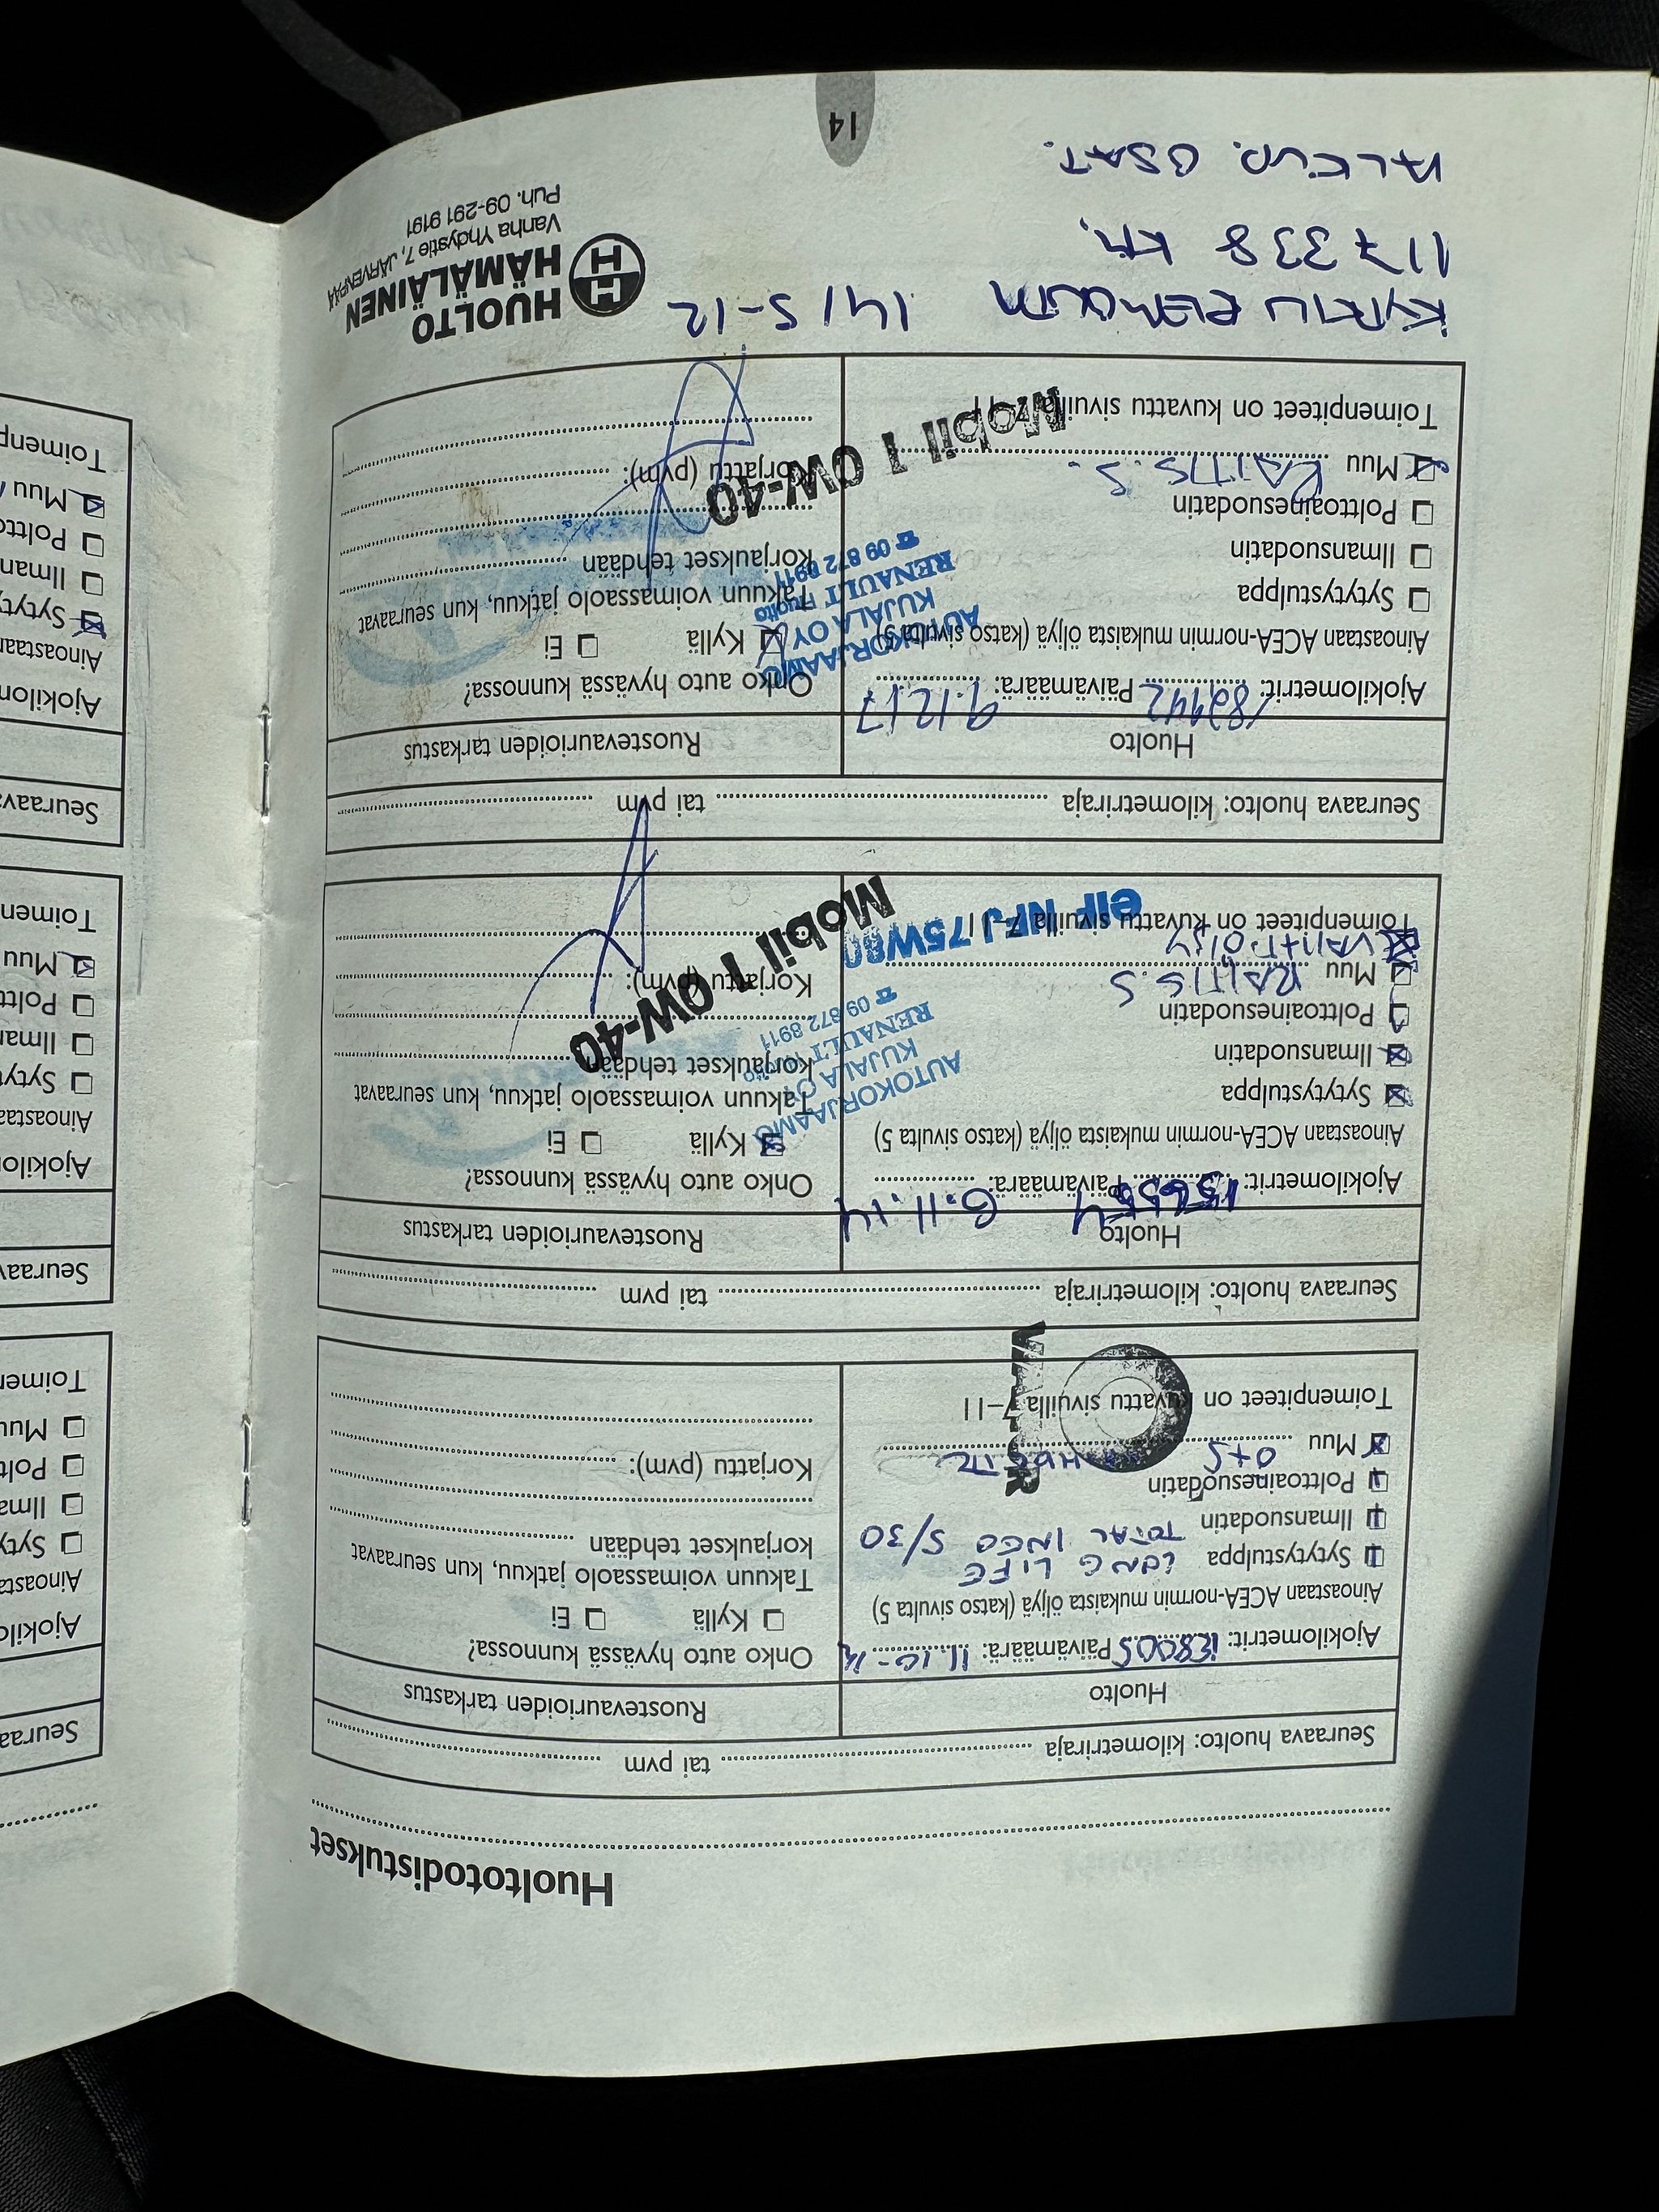 Huoltotodistukset
Seuraava huolto: kilometriraja tai pvm
Huolto Ruostevaurioiden tarkastus
Ajokilometrit: Päivämäärä: 11.10-14
Ainoastaan ACEA-normin mukaista öljyä (katso sivulta 5)
Sytytystulppa LONG LIFE
Ilmansuodatin TOTAL INEO 5/30
Polttoainesuodatin
Muu O+S
Toimenpiteet on kuvattu sivuilla 7–11
Onko auto hyvässä kunnossa?
Kyllä Ei
Takuun voimassaolo jatkuu, kun seuraavat
korjaukset tehdään
Korjattu (pvm):
Seuraava huolto: kilometriraja tai pvm
Huolto Ruostevaurioiden tarkastus
Ajokilometrit: Päivämäärä: 6.11.14
Ainoastaan ACEA-normin mukaista öljyä (katso sivulta 5)
Sytytystulppa
Ilmansuodatin
Polttoainesuodatin
Muu RAITIS.S
VAIHT.ÖLJY
Toimenpiteet on kuvattu sivuilla 7–11
elF NFJ 75W80
Onko auto hyvässä kunnossa?
Kyllä Ei
Takuun voimassaolo jatkuu, kun seuraavat
korjaukset tehdään
Korjattu (pvm):
AUTOKORJAAMO
KUJALA OY
RENAULT Huolto
☎ 09 872 8911
Mobil 1 0W-40
Seuraava huolto: kilometriraja tai pvm
Huolto Ruostevaurioiden tarkastus
Ajokilometrit: 182442 Päivämäärä: 9.12.17
Ainoastaan ACEA-normin mukaista öljyä (katso sivulta 5)
Sytytystulppa
Ilmansuodatin
Polttoainesuodatin
Muu RAITIS.S.
Toimenpiteet on kuvattu sivuilla 7–11
Onko auto hyvässä kunnossa?
Kyllä Ei
Takuun voimassaolo jatkuu, kun seuraavat
korjaukset tehdään
Korjattu (pvm):
AUTOKORJAAMO
KUJALA OY
RENAULT Huolto
☎ 09 872 8911
Mobil 1 0W-40
14/5-12
117 338 km.
OSAT.
HH
HUOLTO
HÄMÄLÄINEN
Vanha Yhdystie 7, JÄRVENPÄÄ
Puh. 09-291 9191
14
Seuraava
Ajokilo
Ainoasta
Sytyt
Ilma
Polt
Muu
Toimen
Seuraav
Ajokilon
Ainoastaa
Sytyt
Ilmar
Poltto
Muu
Toimen
Seuraava
Ajokilom
Ainoastaan
Sytyty
Ilman
Poltto
Muu
Toimenp